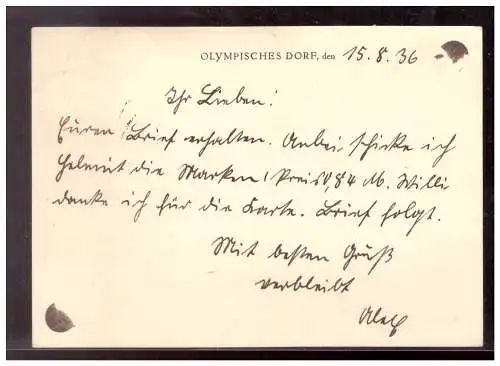 OLYMPISCHES DORF, den 15.8.36
Ihr Lieben!
Euren Brief erhalten. Anbei schicke ich
Helmut die Marken! Preis 0,84 M. Willi
danke ich für die Karte. Brief folgt.
Mit besten Gruß
verbleibt